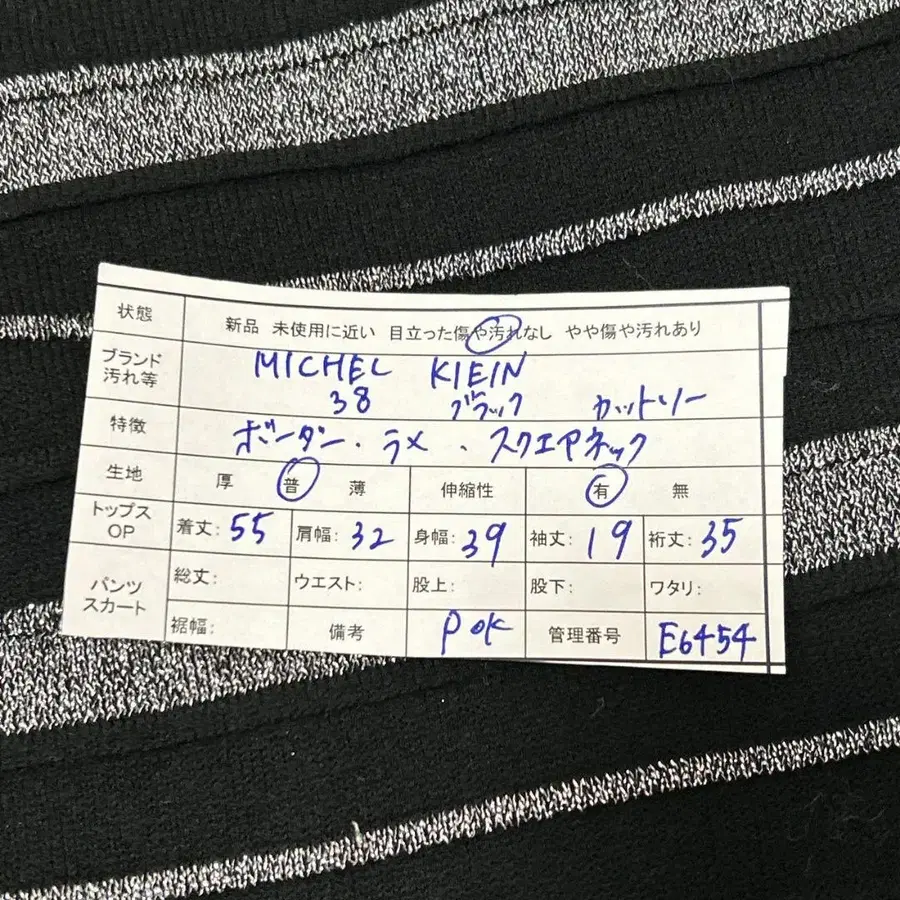 状態 新品 未使用に近い 目立った傷や汚れなし やや傷や汚れあり
ブランド 汚れ等 MICHEL KlEIN
38 ブラック カットソー
特徴 ボーダー・ラメ・スクエアネック
生地 厚 普 薄 伸縮性 有 無
トップス OP 着丈: 55 肩幅: 32 身幅: 39 袖丈: 19 裄丈: 35
パンツ スカート 総丈: ウエスト: 股上: 股下: ワタリ:
裾幅: 備考 P ok 管理番号 E6454